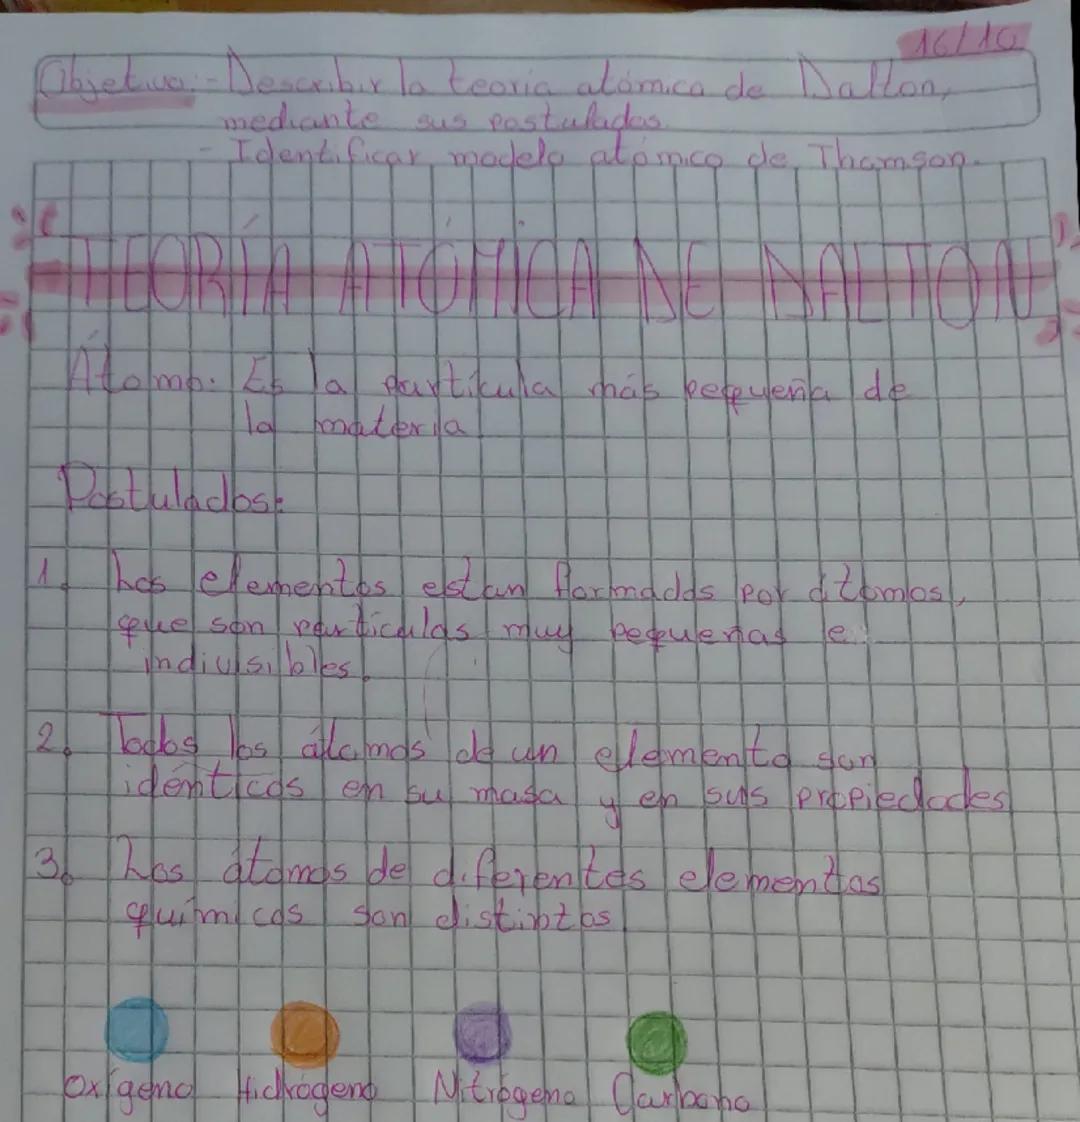 16/10
Objetivo: - Describir la teoría atómica de Dalton,
mediante sus postulados.
- Identificar modelo atómico de Thomson.
TEORÍA ATÓMICA DE DALTON
Átomo: Es la partícula más pequeña de
la materia
Postulados:
1. Los elementos estan formados por átomos,
que son particulas muy pequeñas e
indivisibles.
2. Todos los átomos de un elemento son
idénticos en su masa y en sus propiedades
3. Los átomos de diferentes elementos
químicos son distintos
Oxígeno Hidrógeno Nitrógeno Carbono